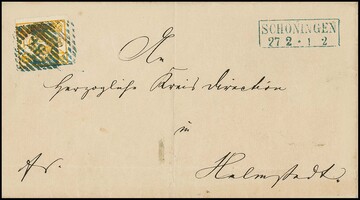 SCHÖNINGEN
27 2 · 1 2
An
Herzogliche Kreis direction
in
Helmstedt.